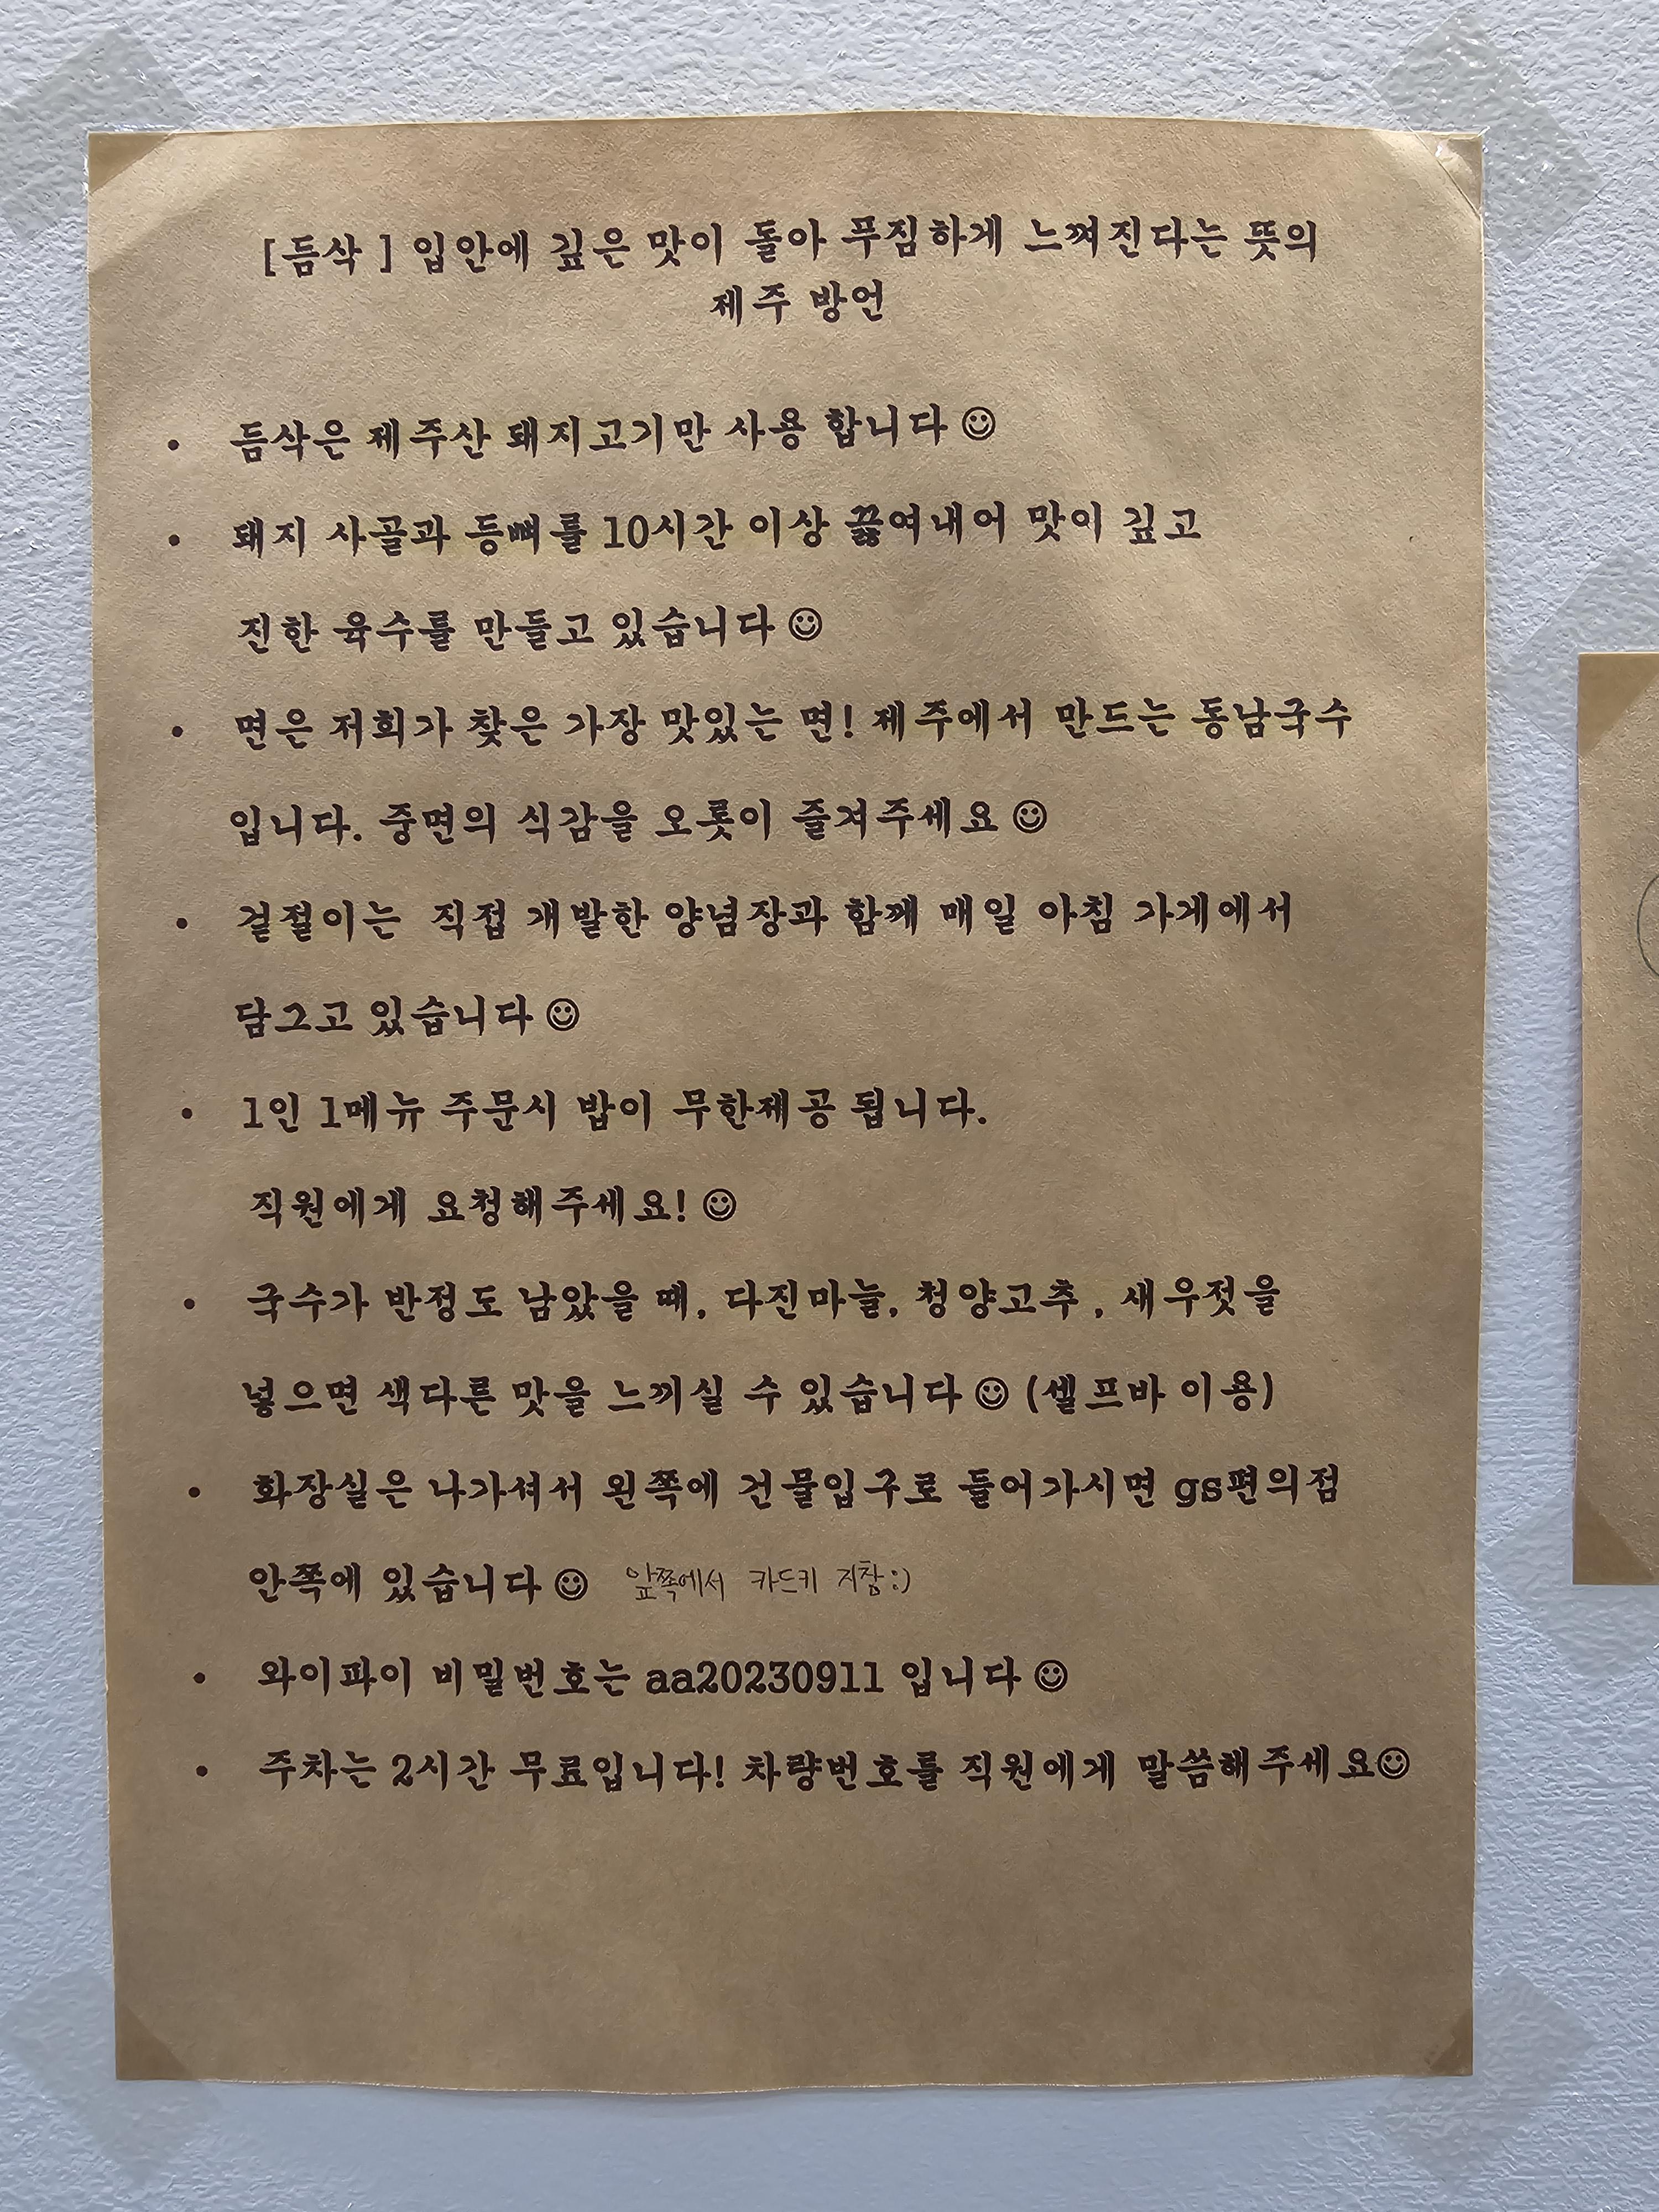 [듬삭 ] 입안에 깊은 맛이 돌아 푸짐하게 느껴진다는 뜻의
제주 방언
• 듬삭은 제주산 돼지고기만 사용 합니다☺
• 돼지 사골과 등뼈를 10시간 이상 끓여내어 맛이 깊고
진한 육수를 만들고 있습니다☺
• 면은 저희가 찾은 가장 맛있는 면! 제주에서 만드는 동남국수
입니다. 중면의 식감을 오롯이 즐겨주세요☺
• 겉절이는 직접 개발한 양념장과 함께 매일 아침 가게에서
담그고 있습니다☺
• 1인 1메뉴 주문시 밥이 무한제공 됩니다.
직원에게 요청해주세요!☺
• 국수가 반정도 남았을 때, 다진마늘, 청양고추 , 새우젓을
넣으면 색다른 맛을 느끼실 수 있습니다☺ (셀프바 이용)
• 화장실은 나가셔서 왼쪽에 건물입구로 들어가시면 gs편의점
안쪽에 있습니다☺ 앞쪽에서 카드키 지참:)
• 와이파이 비밀번호는 aa20230911 입니다☺
• 주차는 2시간 무료입니다! 차량번호를 직원에게 말씀해주세요☺